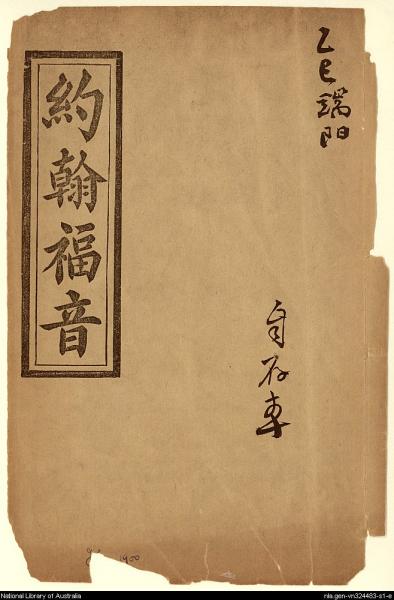 乙巳端阳
約翰福音
1900
National Library of Australia
nla.gen-vn324483-s1-e